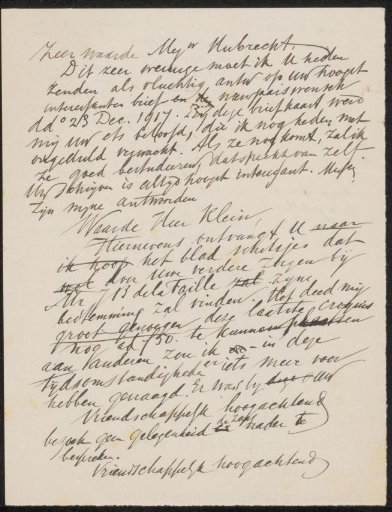 Zeer waarde Mejr Hubrecht,
Dit zeer weinige moet ik U heden
zenden als vluchtig antw. op uw hoogst
interessanten brief en nieuwjaarswensch
dd° 23 Dec. 1917. Bij deze briefkaart werd
mij uw ets beloofd, die ik nog heden met
ongeduld verwacht. Als ze nog komt, zal ik
ze goed bestudeeren, dat spreekt van zelf
Uw schrijven is altijd hoogst interessant.
Zijn mijne antwoorden
Waarde Heer Klein,
Hiernevens ontvangt U naar
ik hoop het blad schetsjes dat
wel door uwe verdere zorgen bij
Mr J B de la Faille zijne
bestemming zal vinden. Het deed mij
groot genoegen deze laatste croquis
nog ad f50. te kunnen plaatsen
aan anderen zou ik in deze
tijdsomstandigheden er iets meer voor
hebben gevraagd. Er was bij uw
Vriendschappelijk hoogachtend
bezoek geen gelegenheid nader te
bespreken.
Vriendschappelijk hoogachtend